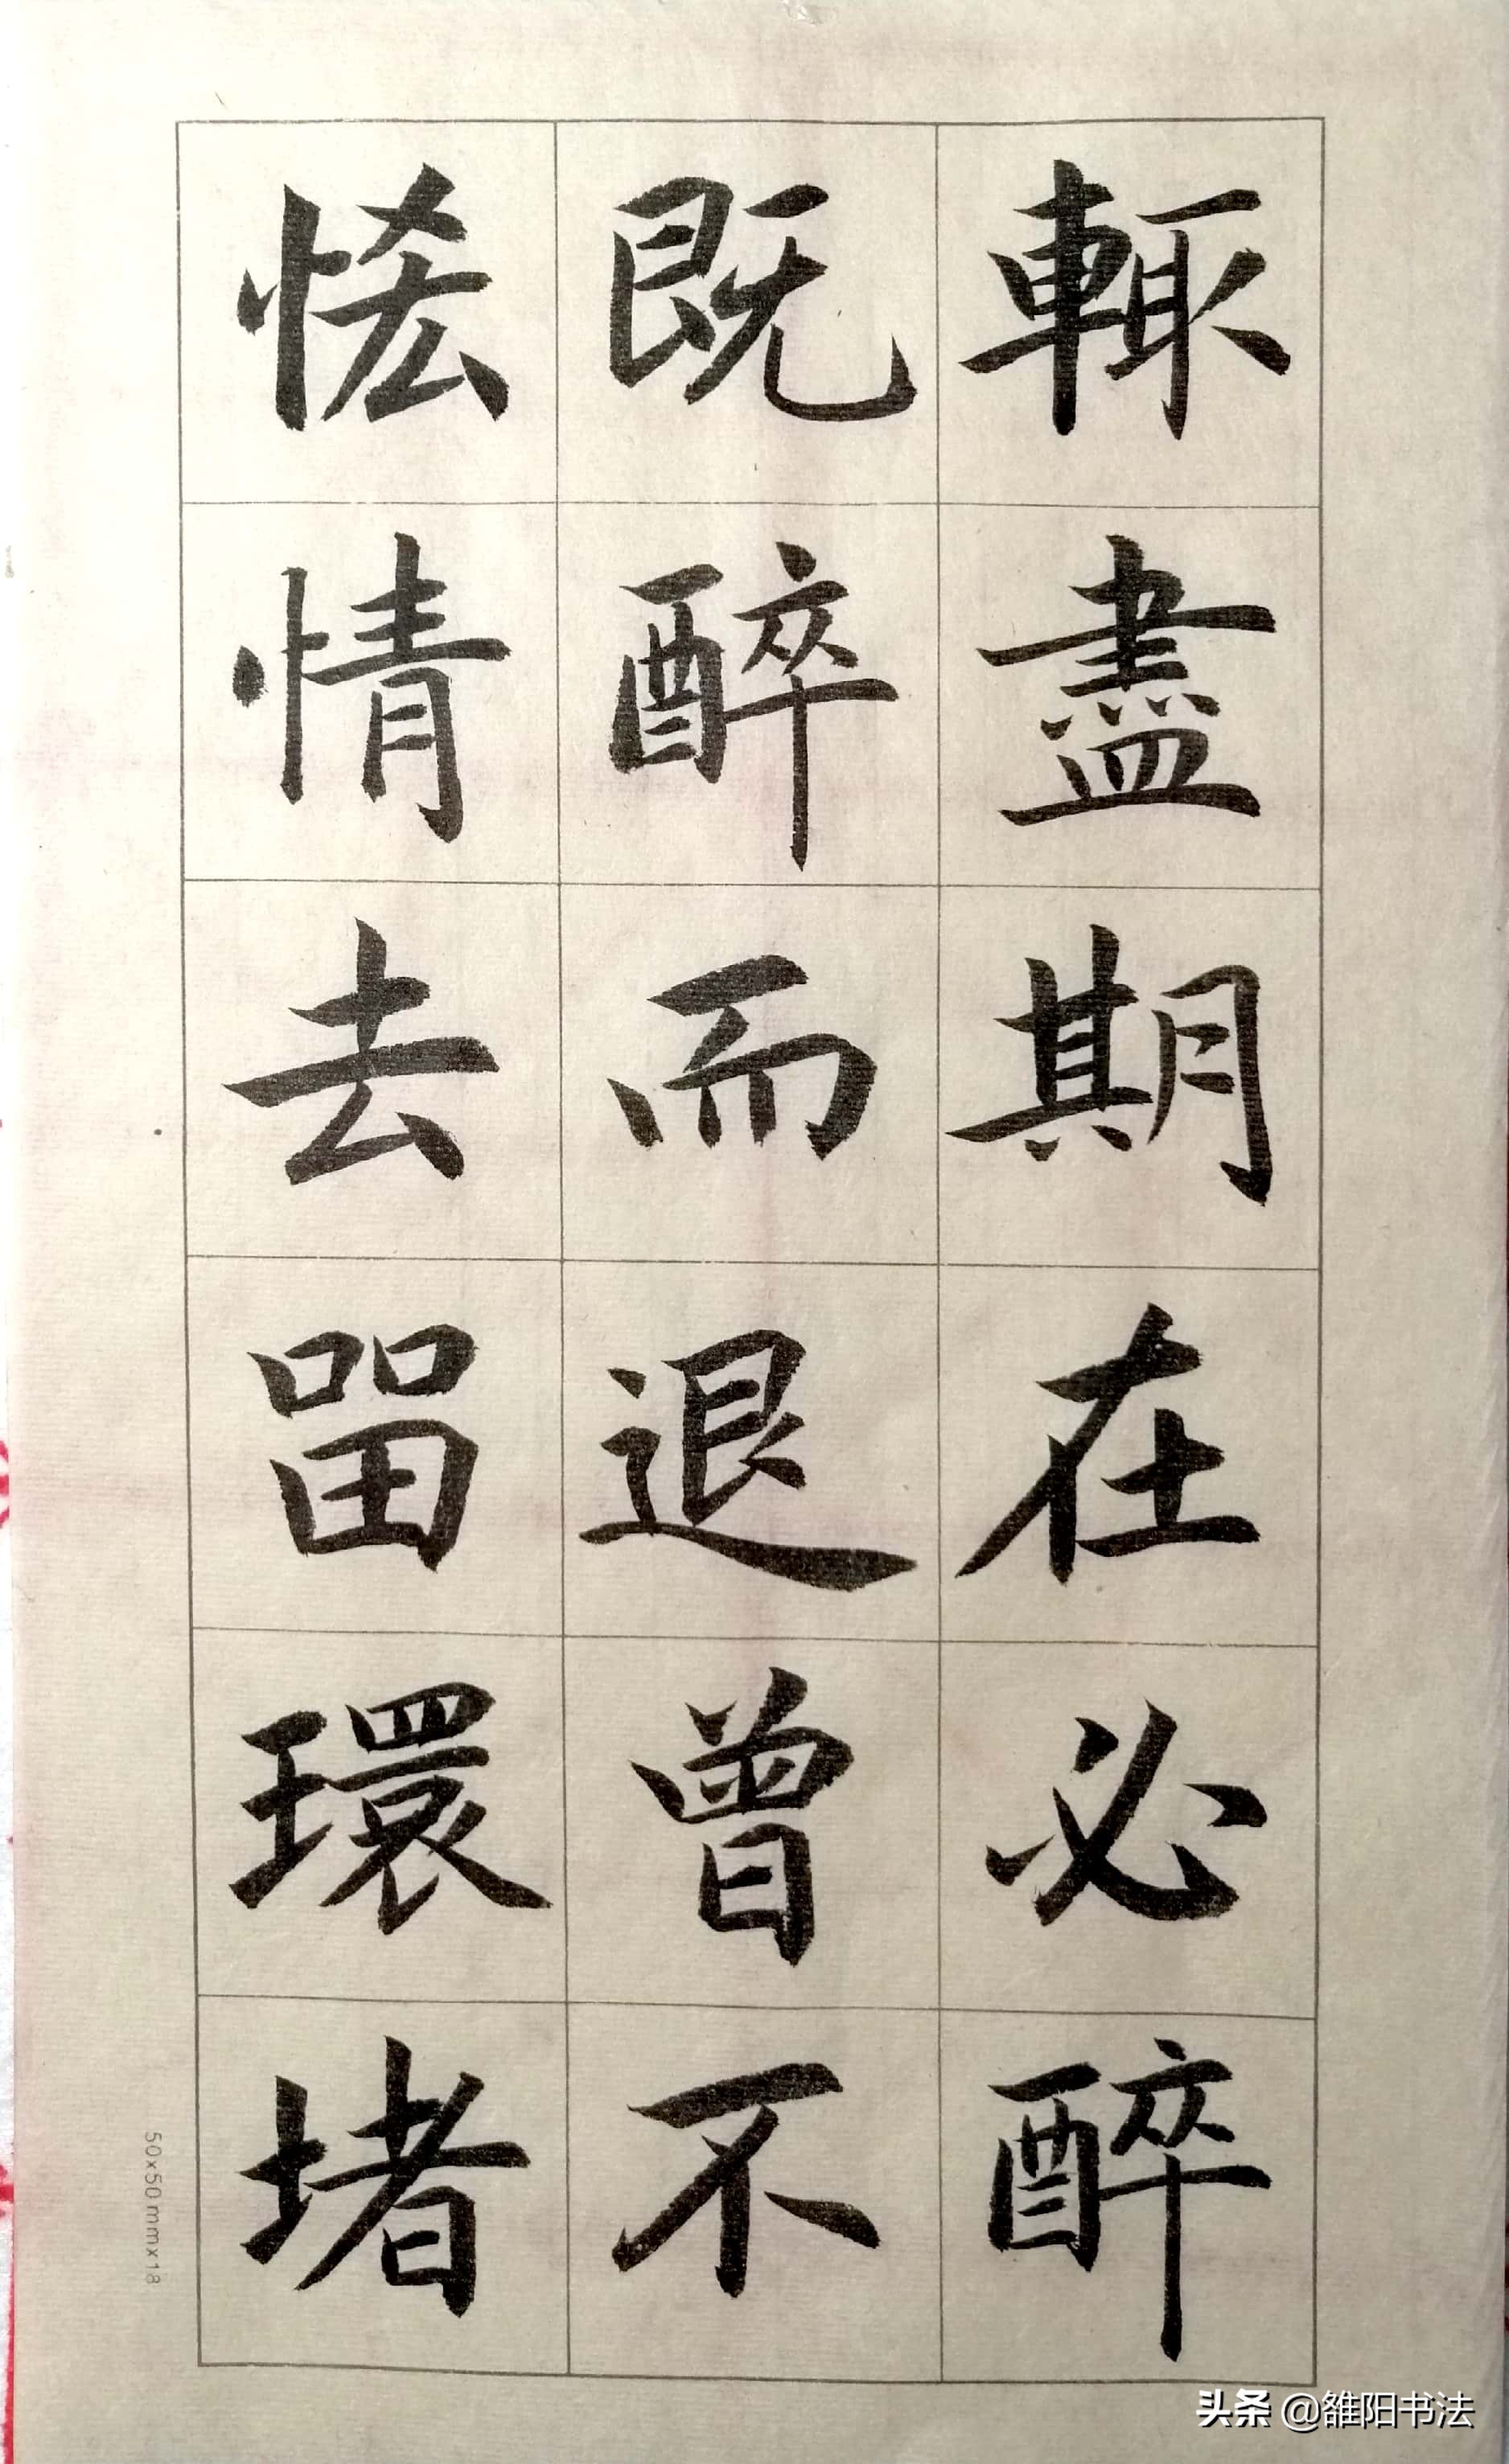 輙盡期在必醉
既醉而退曾不
恡情去留環堵
50x50mmx18
头条 @雒阳书法